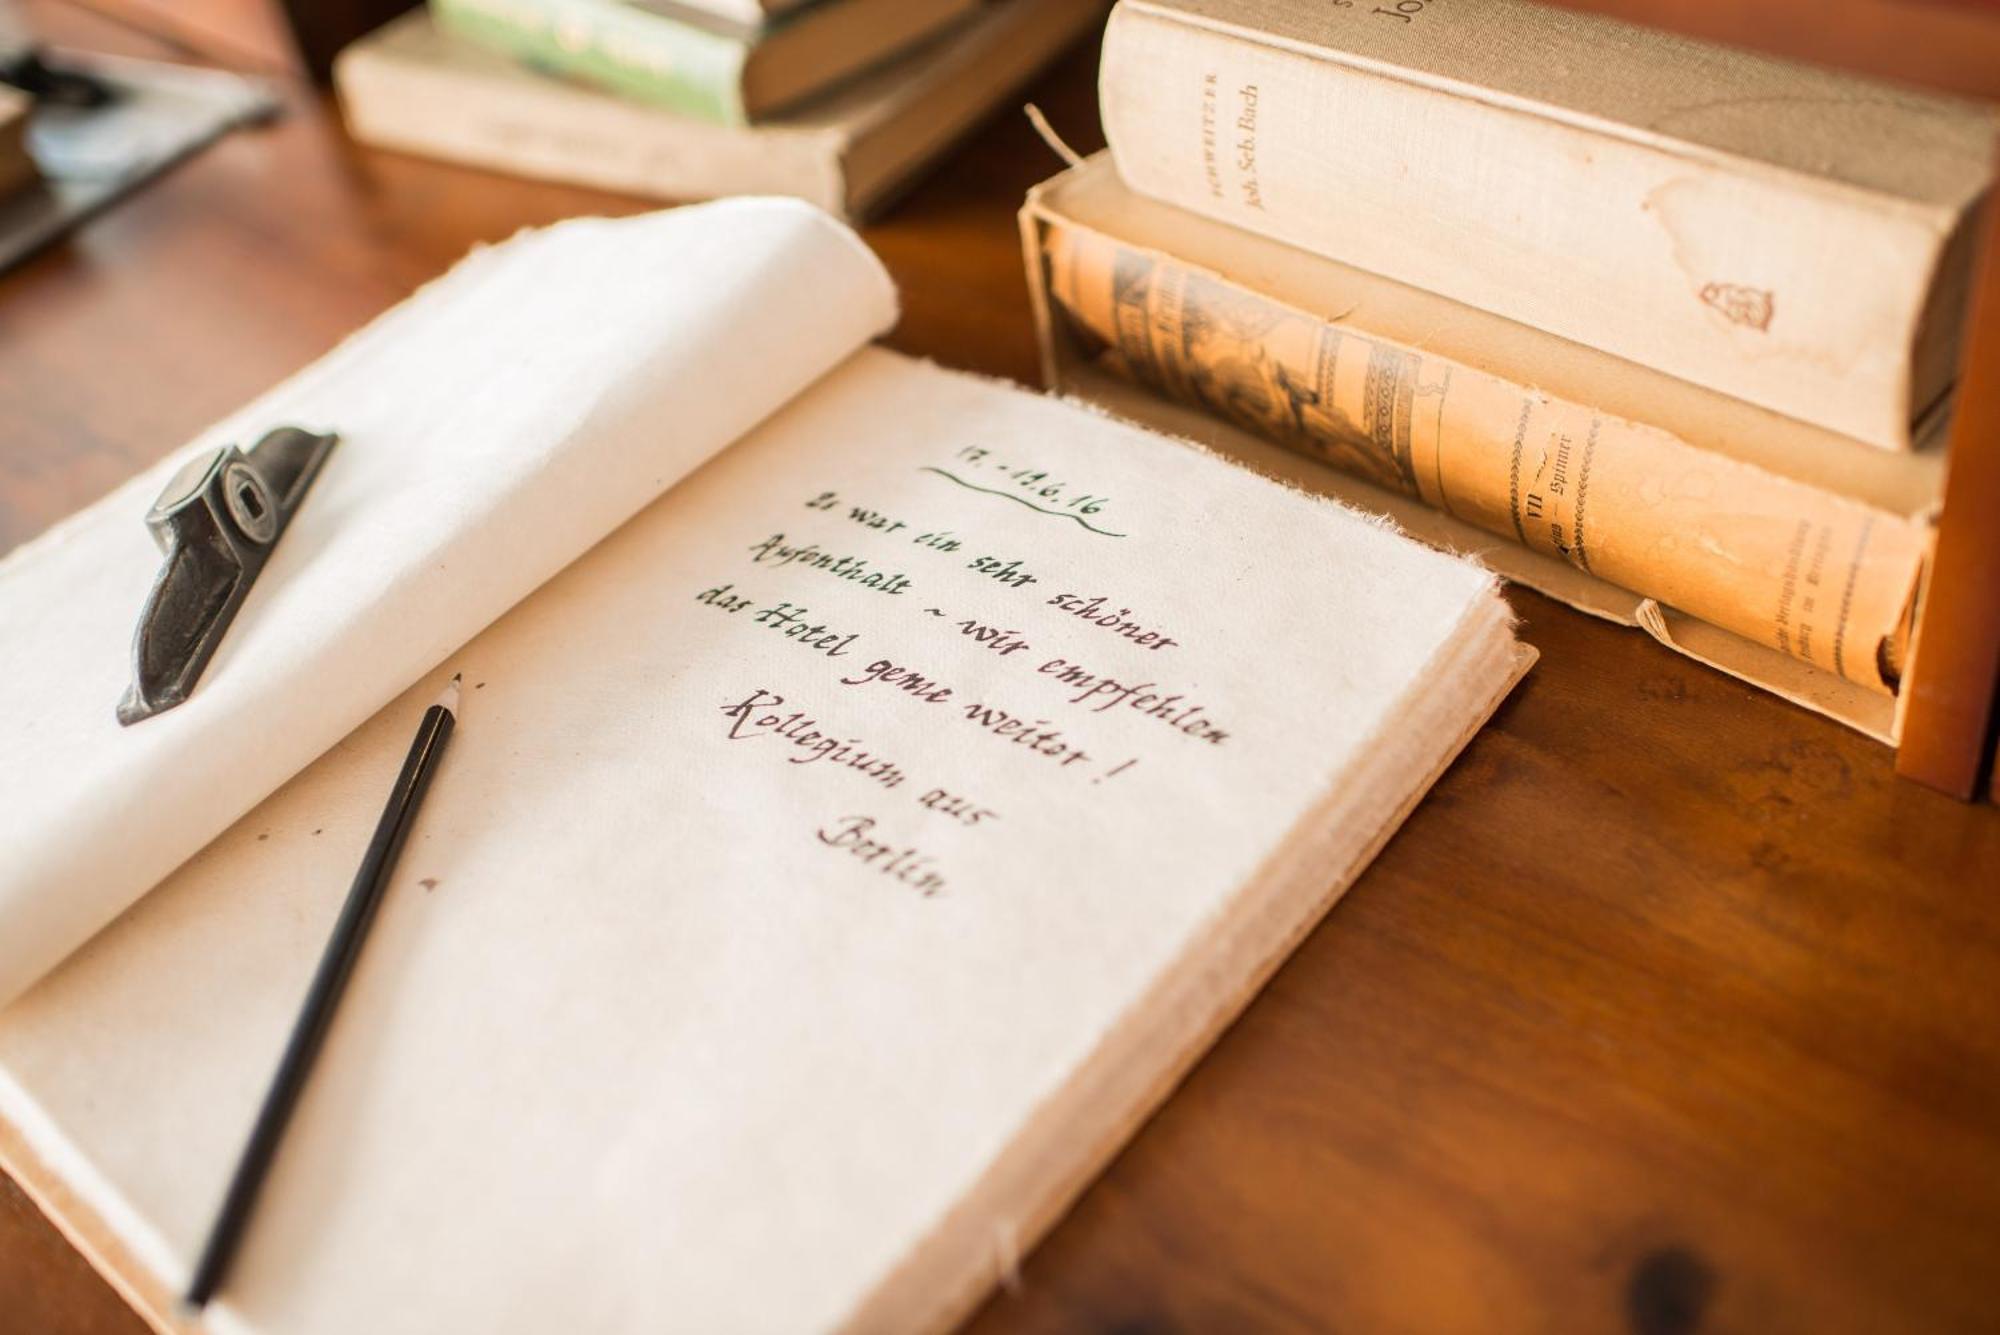 17. - 19.6.16
Es war ein sehr schöner
Aufenthalt ~ wir empfehlen
das Hotel gerne weiter!
Kollegium aus
Berlin
SCHWEITZER
Joh. Seb. Bach
VII
Spinner